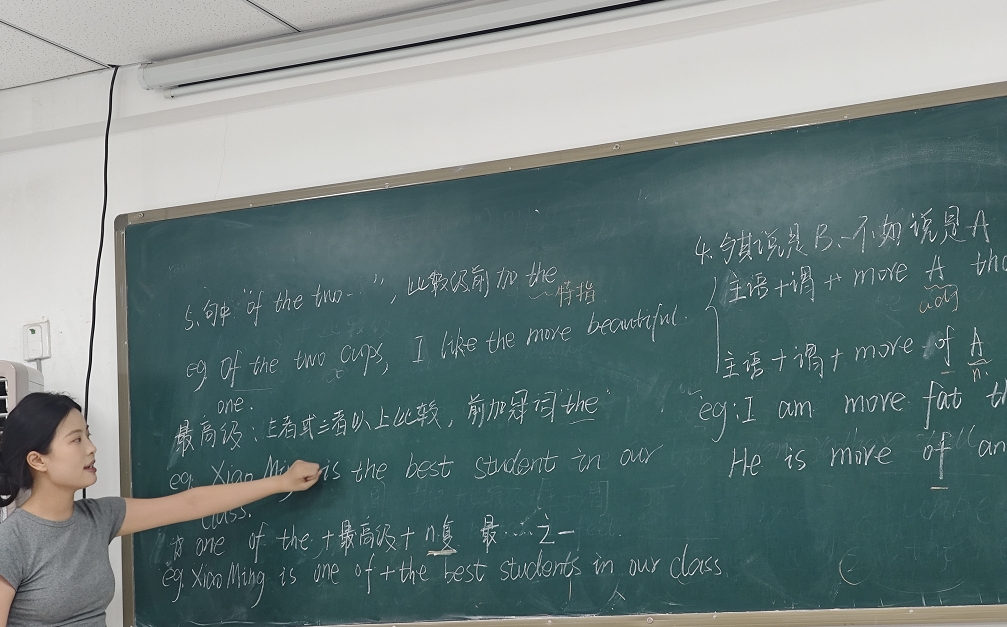 5、句中"of the two…", 比较级前加 the
特指
eg Of the two cups, I like the more beautiful
one.
最高级：三者或三者以上比较，前加冠词 the
eg. Xiao Ming is the best student in our
class.
one of the + 最高级 + n.复 最…之一
eg. Xiao Ming is one of + the best students in our class
4.与其说是B、不如说是A
主语+谓+ more A tha
adj
主语+谓+ more of A th
n.
eg: I am more fat th
He is more of an